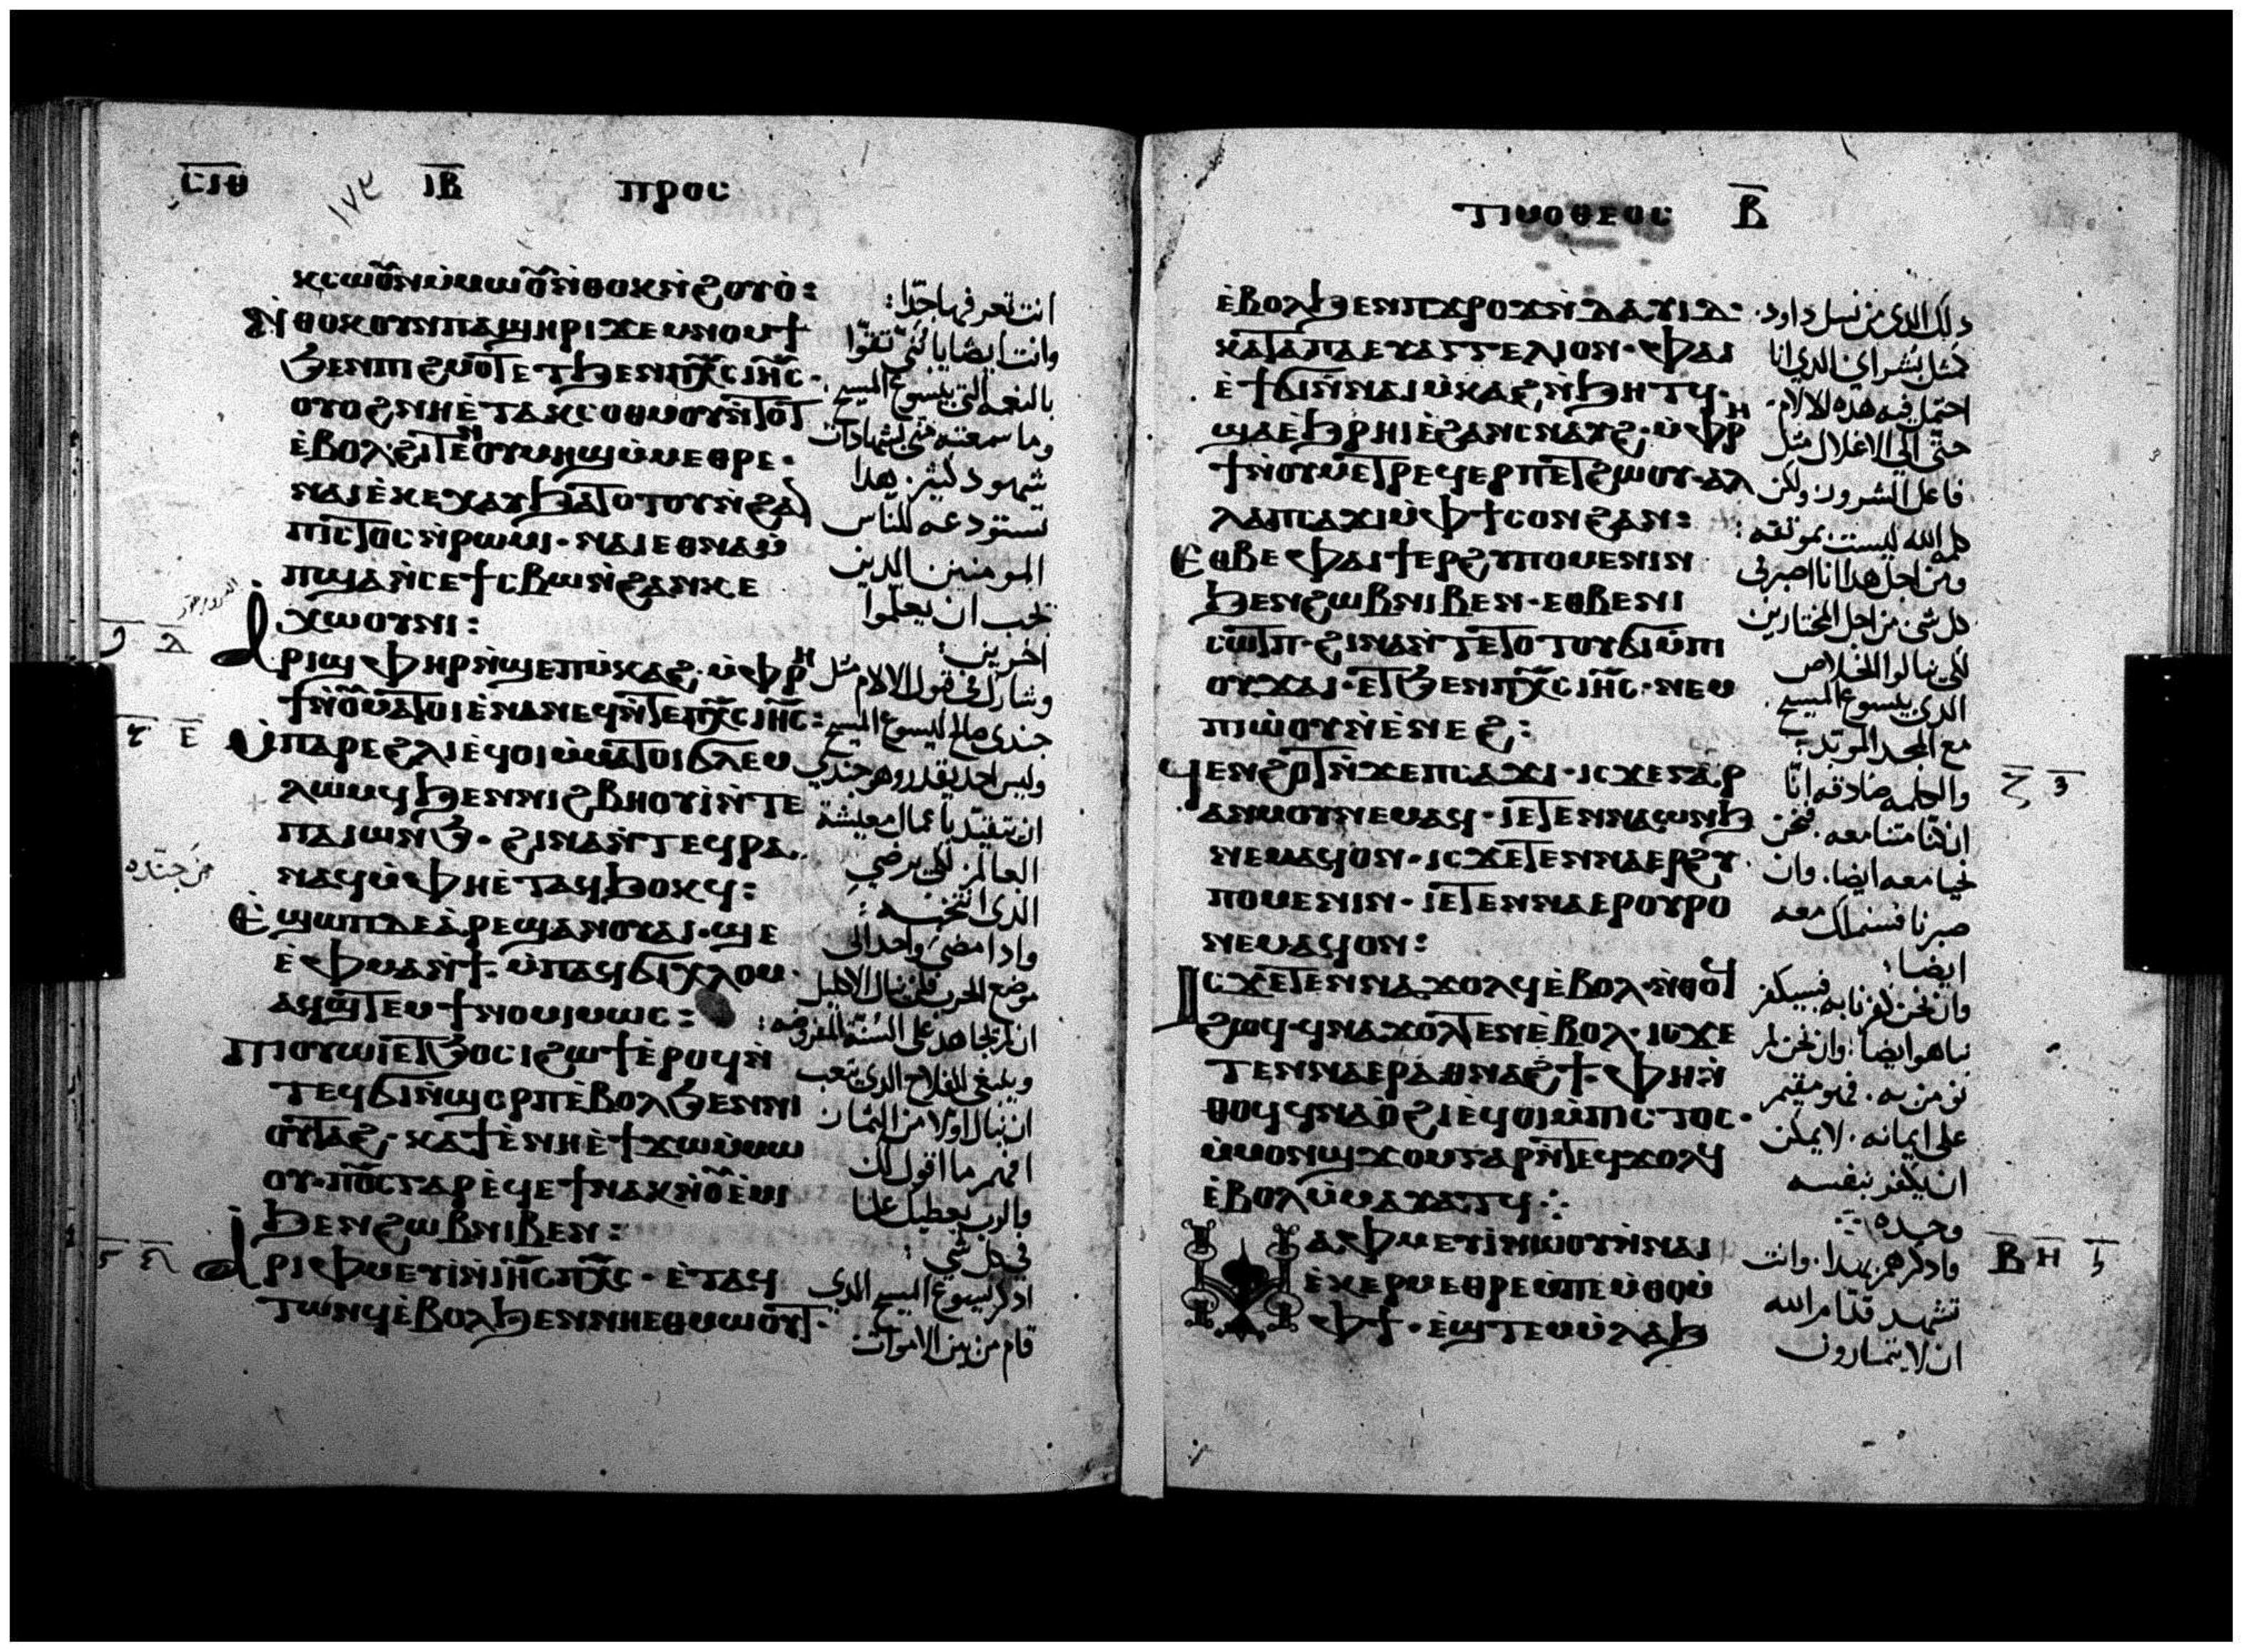 ⲥⲓⲑ ⲓⲃ ⲡⲣⲟⲥ
١٧٣
ⲕⲥⲱⲟⲩⲛ ⲙ̀ⲙⲱⲟⲩ ⲛ̀ⲑⲟⲕ ⲛ̀ϩⲟⲩⲟ̀:
ⲛ̀ⲑⲟⲕ ⲟⲩⲛ ⲡⲁϣⲏⲣⲓ ϫⲉⲙⲛⲟⲙϯ
ϧⲉⲛ ⲡⲓϩⲙⲟⲧ ⲉⲧϧⲉⲛ ⲡⲭ̅ⲥ ⲓⲏ̅ⲥ·
ⲟⲩⲟϩ ⲛⲏⲉ̀ⲧⲁⲕⲥⲟⲑⲙⲟⲩ ⲛ̀ⲧⲟⲧ
ⲉ̀ⲃⲟⲗ ϩⲓⲧⲉⲛ ⲟⲩⲙⲏϣ ⲙ̀ⲙⲉⲑⲣⲉ·
ⲛⲁⲓ ⲉ̀ⲕⲉⲭⲁⲩ ϧⲁⲧⲟⲧⲟⲩ ⲛ̀ϩⲁⲛ
ⲡⲓⲥⲧⲟⲥ ⲛ̀ⲣⲱⲙⲓ· ⲛⲁⲓ ⲉⲑⲛⲁⲙ̀
ⲡϣⲁ ⲛ̀ⲥⲉϯⲥⲃⲱ ⲛ̀ϩⲁⲛⲕⲉ
ⲭⲱⲟⲩⲛⲓ:
ⲁⲣⲓϣⲫⲏⲣ ⲛ̀ϣⲉⲡⲙ̀ⲕⲁϩ· ⲙ̀ⲫⲣⲏ
ϯ ⲛ̀ⲟⲩⲙⲁⲧⲟⲓ ⲉ̀ⲛⲁⲛⲉϥ ⲛ̀ⲧⲉ ⲡⲭ̅ⲥ ⲓⲏ̅ⲥ:
ⲙ̀ⲡⲁⲣⲉ ϩⲗⲓ ⲉϥⲟⲓ ⲙ̀ⲙⲁⲧⲟⲓ ϭⲗⲉⲙ
ⲗⲱⲙϥ ϧⲉⲛ ⲛⲓϩⲃⲏⲟⲩⲓ̀ ⲛ̀ⲧⲉ
ⲡⲁⲓⲱⲛϧ· ϩⲓⲛⲁ ⲛ̀ⲧⲉϥⲣⲁ
ⲛⲁϥ ⲙ̀ⲫⲏⲉ̀ⲧⲁϥϧⲟⲕϥ:
ⲉ̀ϣⲱⲡ ⲇⲉ ⲁⲣⲉϣⲁⲛ ⲟⲩⲁⲓ· ϣⲉ
ⲉ̀ⲫⲙⲁ ⲛ̀ϯ· ⲙ̀ⲡⲁϥϭⲓⲭⲗⲟⲙ·
ⲁϥϣⲧⲉⲙϯ ⲛⲟⲙⲓⲙⲱⲥ:
ⲡⲓⲟⲩⲱⲓ ⲉⲧϧⲟⲥⲓ ϩⲱϯ ⲉ̀ⲣⲟϥ ⲛ̀
ⲧⲉϥϭⲓ ⲛ̀ϣⲟⲣⲡ ⲉ̀ⲃⲟⲗ ϧⲉⲛ ⲛⲓ
ⲟⲩⲧⲁϩ· ⲕⲁϯ ⲉ̀ⲛⲏⲉ̀ϯϫⲱ ⲙ̀ⲙⲱ
ⲟⲩ· ⲡⲟ̅ⲥ ⲅⲁⲣ ⲉ̀ϥⲉϯ ⲛⲁⲕ ⲛ̀ⲟⲩⲉ̀ⲙⲓ
ϧⲉⲛ ϩⲱⲃ ⲛⲓⲃⲉⲛ:
ⲁⲣⲓⲫⲙⲉⲩⲓ̀ ⲛ̀ⲓⲏ̅ⲥ ⲡⲭ̅ⲥ· ⲉ̀ⲧⲁϥ
ⲧⲱⲛϥ ⲉ̀ⲃⲟⲗ ϧⲉⲛ ⲛⲏⲉⲑⲙⲱⲟⲩⲧ·
انت تعرفها جدا:
وانت ايضا يا ابني تقوا
بالنعمه التي بيسوع المسيح.
وما سمعته مني بشهادات
شهود كثير. هذا
تستودعه للناس
المومنين الدين
يجب ان يعلموا
اخرين:
وشارك في قبول الالام مثل
جندي صالح ليسوع المسيح
وليس احد يقدر وهو جندي
ان يتقيد باعمال معيشة
العالم: لكي يرضي
الذي انتخبه:
وادا مضى واحد الى
موضع الحرب فلن ينال الاكليل
ان لم يجاهد على السنة المفروضه:
وينبغي للفلاح الدي يتعب
ان ينال اولا من الثمار
افهم ما اقول لك
فالرب يعطيك علما
في كل شي:
ادكر ليسوع المسيح الدي
قام من بين الاموات
ⲧⲓⲙⲟⲑⲉⲟⲥ ⲃ̅
ⲉ̀ⲃⲟⲗ ϧⲉⲛ ⲡϫⲣⲟϫ ⲛ̀ⲇⲁⲩⲓⲇ·
ⲕⲁⲧⲁ ⲡⲁⲉⲩⲁⲅⲅⲉⲗⲓⲟⲛ· ⲫⲁⲓ
ⲉ̀ϯϭⲓ ⲛ̀ⲛⲁⲓⲙ̀ⲕⲁϩ ⲛ̀ϧⲏⲧϥ·
ϣⲁ ⲉ̀ϧⲣⲏⲓ ⲉ̀ϩⲁⲛⲥⲛⲁⲩϩ· ⲙ̀ⲫⲣⲏ
ϯ ⲛ̀ⲟⲩⲣⲉϥⲉⲣⲡⲉⲧϩⲱⲟⲩ· ⲁⲗ
ⲗⲁ ⲡⲥⲁϫⲓ ⲙ̀ⲫϯ ⲥⲟⲛϩ ⲁⲛ:
ⲉⲑⲃⲉ ⲫⲁⲓ ϯⲉⲣϩⲩⲡⲟⲙⲉⲛⲓⲛ
ϧⲉⲛ ϩⲱⲃ ⲛⲓⲃⲉⲛ· ⲉⲑⲃⲉ ⲛⲓ
ⲥⲱⲧⲡ· ϩⲓⲛⲁ ⲛ̀ⲧⲉ ⲧⲟⲧⲟⲩ ϭⲓ ⲙ̀ⲡⲓ
ⲟⲩϫⲁⲓ· ⲉⲧϧⲉⲛ ⲡⲭ̅ⲥ ⲓⲏ̅ⲥ· ⲛⲉⲙ
ⲡⲓⲱ̀ⲟⲩ ⲛ̀ⲉ̀ⲛⲉϩ:
ϥⲉⲛϩⲟⲧ ⲛ̀ϫⲉ ⲡⲥⲁϫⲓ· ⲓⲥϫⲉ ⲅⲁⲣ
ⲁⲛⲙⲟⲩ ⲛⲉⲙⲁϥ· ⲓⲉ ⲧⲉⲛⲛⲁⲱⲛϧ
ⲛⲉⲙⲁϥ ⲟⲛ· ⲓⲥϫⲉ ⲧⲉⲛⲛⲁⲉⲣϩⲩ
ⲡⲟⲙⲉⲛⲓⲛ· ⲓⲉ ⲧⲉⲛⲛⲁⲉⲣⲟⲩⲣⲟ
ⲛⲉⲙⲁϥ ⲟⲛ:
ⲓⲥϫⲉ ⲧⲉⲛⲛⲁϫⲟⲗϥ ⲉ̀ⲃⲟⲗ· ⲛ̀ⲑⲟϥ
ϩⲱϥ· ϥⲛⲁϫⲟⲗⲧⲉⲛ ⲉ̀ⲃⲟⲗ· ⲓⲥϫⲉ
ⲧⲉⲛⲛⲁⲉⲣⲁⲑⲛⲁϩϯ· ⲫⲏ ⲛ̀
ⲑⲟϥ ϥⲛⲁⲟ̀ϩⲓ ⲉϥⲟⲓ ⲙ̀ⲡⲓⲥⲧⲟⲥ·
ⲙ̀ⲙⲟⲛ ϣϫⲟⲙ ⲅⲁⲣ ⲛ̀ⲧⲉϥϫⲟⲗϥ
ⲉ̀ⲃⲟⲗ ⲙ̀ⲙⲁⲩⲁⲧϥ·:
ⲙⲁⲫⲙⲉⲩⲓ̀ ⲛⲱⲟⲩ ⲛ̀ⲛⲁⲓ
ⲉⲕⲉⲣⲙⲉⲑⲣⲉ ⲙ̀ⲡⲉⲙ̀ⲑⲟ ⲙ̀
ⲫϯ· ⲉ̀ϣⲧⲉⲙⲙ̀ⲗⲁϧ
دلك الدي من نسل داود.
كمثل بشراي الدي انا
احتمل فيه هذه الالام.
حتى الي الاغلال مثل
فاعل الشرور. ولكن
كلمه الله ليست بموثقه:
ومن اجل هدا انا اصبر في
كل شي من اجل المختارين
لكي ينالوا الخلاص
الدي بيسوع المسيح.
مع المجد الموبد:
والكلمه صادقه انا
ان كنا متنا معه. فنحن
نحيا معه ايضا. وان
صبرنا فسنملك معه
ايضا:
وان نحن كفرنا به فسيكفر
بنا هو ايضا: وان نحن لم
نومن به. فهو مقيم
على ايمانه. لا يمكن
ان يكفر بنفسه
وحده:
فادكرهم بهدا. وانت
تشهد قدام الله
ان لا يتمارون
ⲃ ⲏ